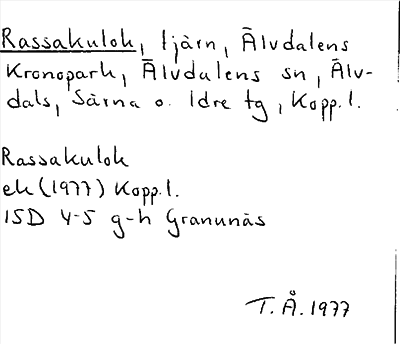 Rassakulok, tjärn, Älvdalens
Kronopark, Älvdalens sn, Älv-
dals, Särna o. Idre tg, Kopp.l.
Rassakulok
ek (1977) Kopp.l.
15D 4-5 g-h Granunäs
T.Å. 1977